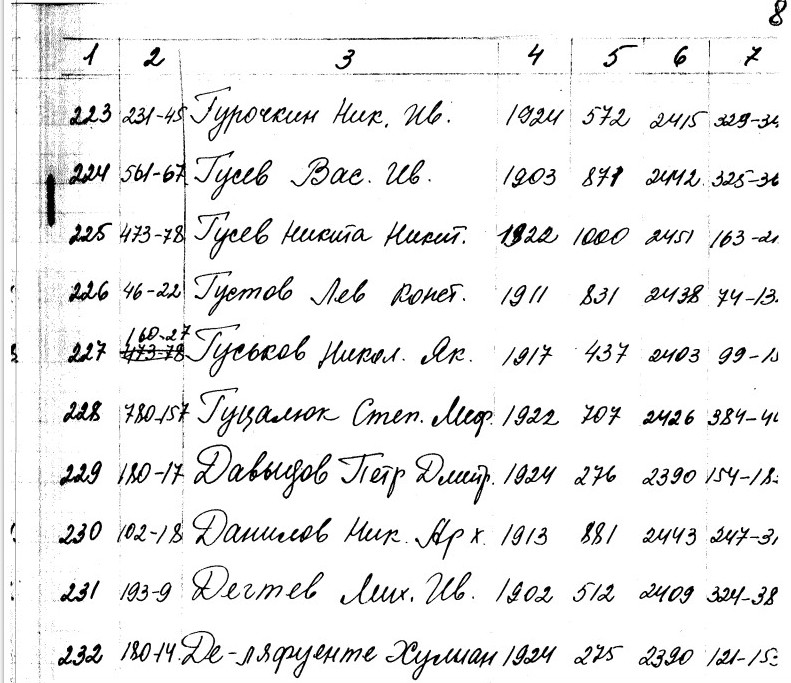 8
1 2 3 4 5 6 7
223 231-45 Гурочкин Ник. Ив. 1924 572 2415
224 561-67 Гусев Вас. Ив. 1903 871 2442
225 473-78 Гусев Никита Никит. 1922 1000 2451
226 46-22 Густов Лев Конст. 1911 831 2438
160-27
227 473-78 Гуськов Никол. Як. 1917 437 2403
228 780-157 Гуцалюк Степ. Миф. 1922 707 2426
229 180-17 Давыдов Петр Дмитр. 1924 276 2390
230 102-18 Данилов Ник. Арх. 1913 881 2443
231 193-9 Дегтев Мих. Ив. 1902 512 2409 324-38
232 180-14 Де-ляфуенте Хулиан 1924 275 2390